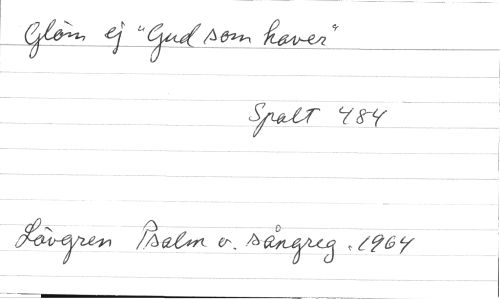 Glöm ej "Gud som haver"
Spalt 484
Lövgren Psalm o. sångreg. 1964